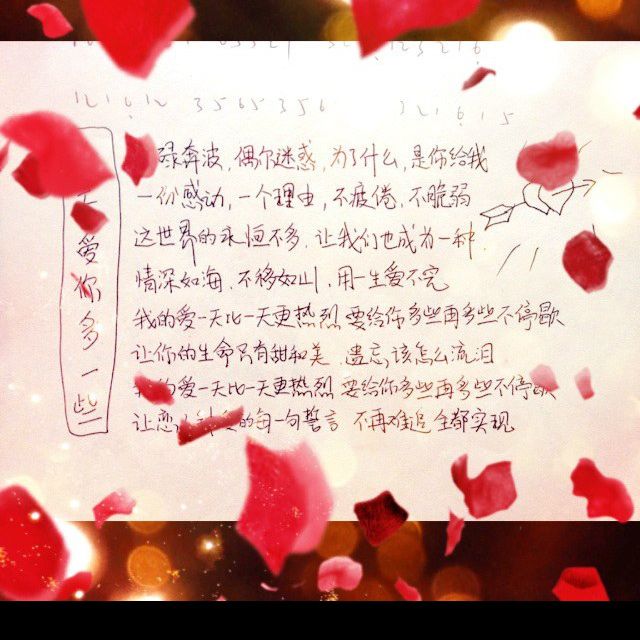 1 2 1 6 1 2 3 5 6 5 3 5 6 3 2 1 6 1 5
爱你多一些
碌奔波,偶尔迷惑,为了什么,是你给我
一份感动,一个理由,不疲倦,不脆弱
这世界的永恒不多,让我们也成为一种
情深如海,不移如山,用一生爱不完
我的爱一天比一天更热烈 要给你多些再多些不停歇
让你的生命只有甜和美 遗忘该怎么流泪
的爱一天比一天更热烈 要给你多些再多些不停歇
让恋 的每一句誓言 不再难追 全都实现